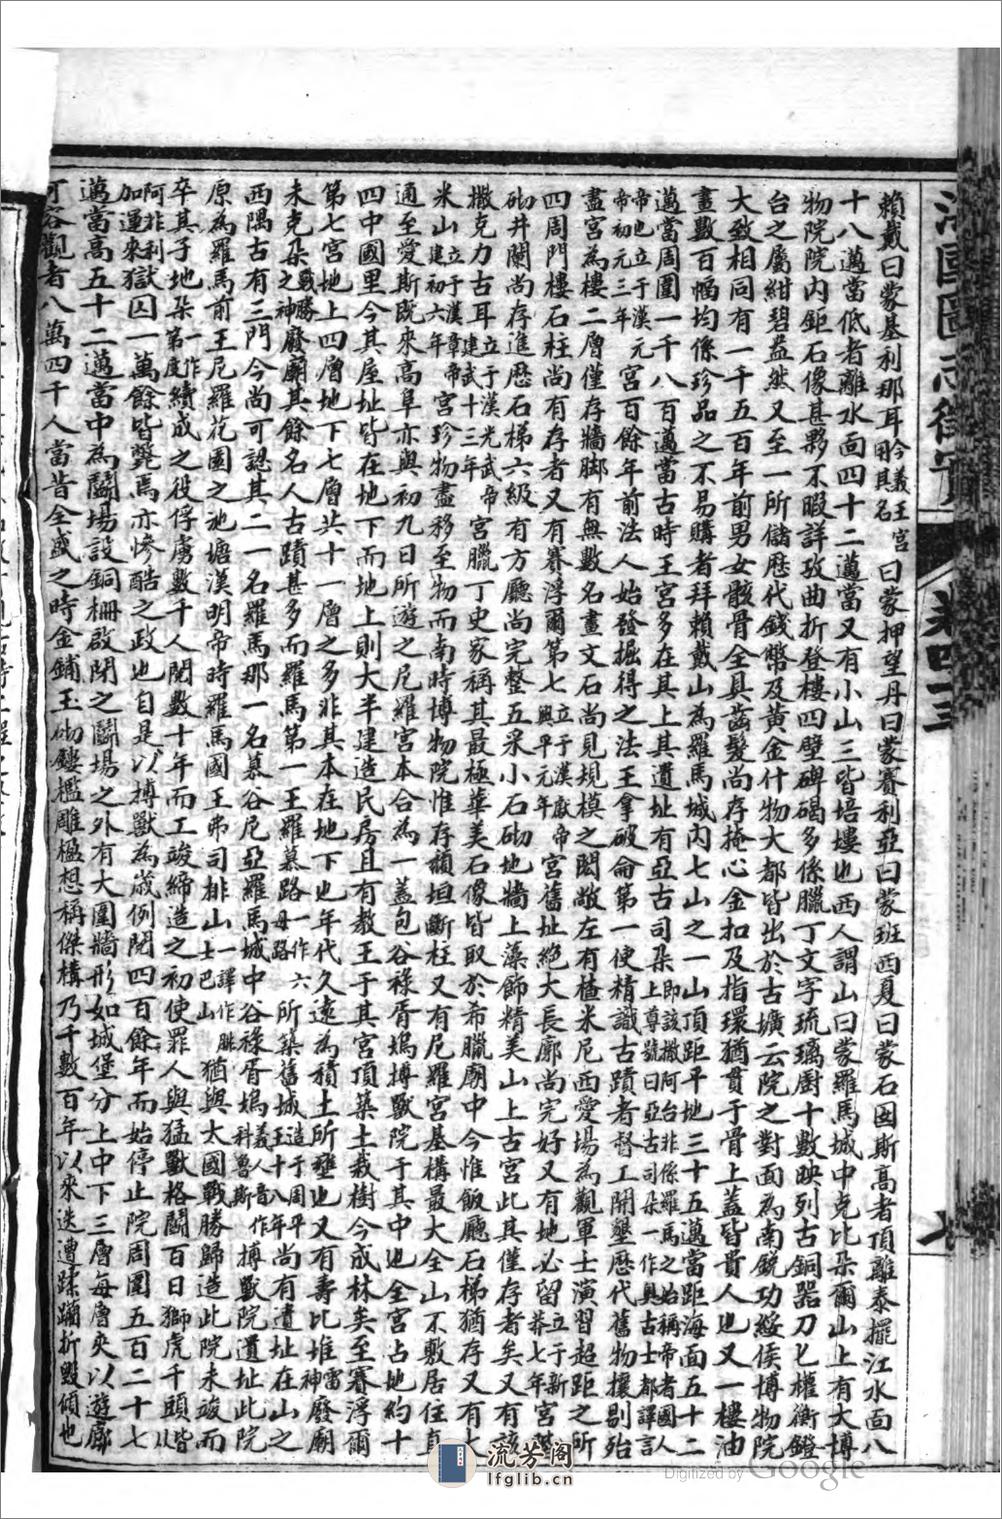 賴戴曰蒙基利那耳今義王宮即其名曰蒙押望丹曰蒙賽利亞曰蒙班西夏曰蒙石國斯高者頂離泰擺江水面八
十八邁當低者離水面四十二邁當又有小山三皆培塿也西人謂山曰蒙羅馬城中克比朵爾山上有大博
物院院內鉅石像甚夥不暇詳攷曲折登樓四壁碑碣多係臘丁文字琉璃廚十數映列古銅器刀匕權衡鐙
台之屬紺碧盎然又至一所儲歷代錢幣及黃金什物大都皆出於古壙云院之對面為南銳功綏侯博物院
大致相同有一千五百年前男女骸骨全具齒髮尚存掩心金扣及指環猶貫于骨上蓋皆貴人也又一樓油
畫數百幅均係珍品之不易購者拜賴戴山為羅馬城內七山之一山頂距平地三十五邁當距海面五十二
邁當周圍一千八百邁當古時王宮多在其上其遺址有亞古司朵即該撒阿台非係羅馬之始稱帝者國人上尊號曰亞古司朵一作具古士都譯言
帝也立于漢元帝初元三年宮百餘年前法人始發掘得之法王拿破侖第一使精識古蹟者督工開墾歷代舊物攘剔殆
盡宮為樓二層僅存牆腳有無數名畫文石尚見規模之閎敞左有楂米尼西愛場為觀軍士演習超距之所
四周門樓石柱尚有存者又有賽浮爾第七立于漢獻帝興平元年宮舊址絕大長廊尚完好又有地必留立于新莽七年宮階
砌井闌尚存進歷石梯六級有方廳尚完整五采小石砌地牆上藻飾精美山上古宮此其僅存者矣又有該
撒克力古耳立于漢光武帝建武十三年宮臘丁史家稱其最極華美石像皆取於希臘廟中今惟飯廳石梯猶存又有七
米山立于漢章帝建初六年宮珍物盡移至物而南時博物院惟存頹垣斷柱又有尼羅宮基構最大全山不敷居住直
通至愛斯既來高阜亦與初九日所遊之尼羅宮本合為一蓋包谷祿胥塢搏獸院于其中也全宮占地約十
四中國里今其屋址皆在地下而地上則大半建造民房且有教王于其宮頂築土栽樹今成林矣至賽浮爾
第七宮地上四層地下七層共十一層之多非其本在地下也年代久遠為積土所壅也又有壽比堆雷神廢廟
未克朵戰勝之神廢廟其餘名人古蹟甚多而羅馬第一王羅慕路一作六母路所築舊城造于周平王十八年尚有遺址在山之
西隅古有三門今尚可認其二一名羅馬那一名慕谷尼亞羅馬城中谷祿胥塢義人音作科魯斯搏獸院遺址此院
原為羅馬前王尼羅花園之池塘漢明帝時羅馬國王弗司排山一譯作腓士巴山猶與大國戰勝歸造此院未竣而
卒其子地朵一作第度續成之役俘虜數千人閱數十年而工竣締造之初使罪人與猛獸格鬬百日獅虎千頭皆以
阿非利加運來獄囚一萬餘皆斃焉亦慘酷之政也自是以搏獸為歲例閱四百餘年而始停止院周圍五百二十七
邁當高五十二邁當中為鬬場設銅柵啟閉之鬬場之外有大圍牆形如城堡分上中下三層每層夾以遊廊
可容觀者八萬四千人當昔全盛之時金鋪玉砌鏤檻雕楹想稱傑構乃千數百年以來迭遭蹂躪折毀傾也
卷四十三
流芳阁
lfglib.cn
Digitized by Google